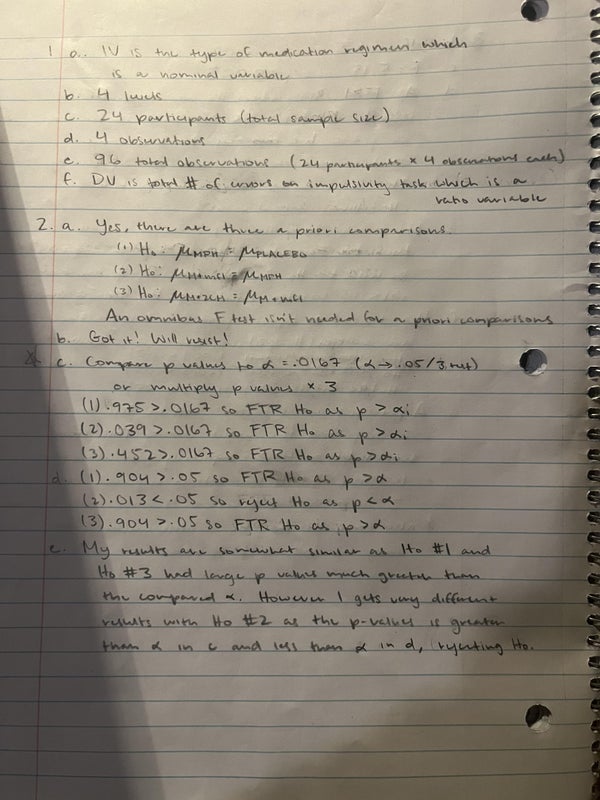 1 a. IV is the type of medication regimen which
is a nominal variable
b. 4 levels
c. 24 participants (total sample size)
d. 4 observations
e. 96 total observations (24 participants × 4 observations each)
f. DV is total # of errors on impulsivity task which is a
ratio variable
2. a. Yes, there are three a priori comparisons.
(1) H₀: μMPH = μPLACEBO
(2) H₀: μM+mCl = μMPH
(3) H₀: μM+2CH = μM+mCl
An omnibus F test isn't needed for a priori comparisons
b. Got it! Will resist!
c. Compare p values to α = .0167 (α → .05/3)
or multiply p values × 3
(1) .975 > .0167 so FTR H₀ as p > αi
(2) .039 > .0167 so FTR H₀ as p > αi
(3) .452 > .0167 so FTR H₀ as p > αi
d. (1) .904 > .05 so FTR H₀ as p > α
(2) .013 < .05 so reject H₀ as p < α
(3) .904 > .05 so FTR H₀ as p > α
e. My results are somewhat similar as H₀ #1 and
H₀ #3 had large p values much greater than
the compared α. However I gets very different
results with H₀ #2 as the p-values is greater
than α in c and less than α in d, rejecting H₀.